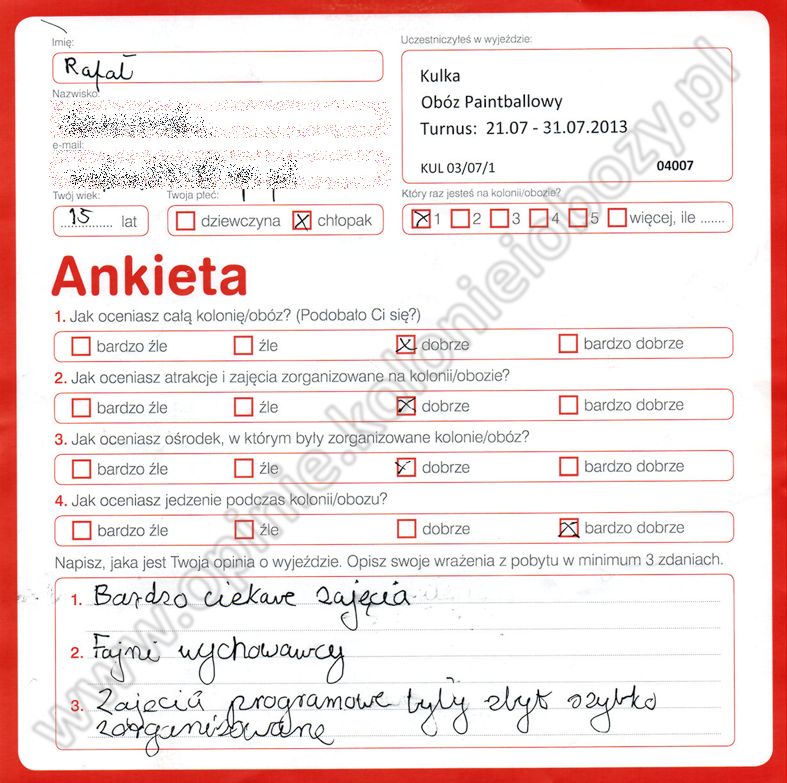 Imię:
Uczestniczyłeś w wyjeździe:
Rafał
Kulka
Obóz Paintballowy
Turnus: 21.07 - 31.07.2013
KUL 03/07/1 04007
Nazwisko:
e-mail:
Twój wiek:
Twoja płeć:
Który raz jesteś na kolonii/obozie?
15 lat
dziewczyna chłopak
1 2 3 4 5 więcej, ile .......
Ankieta
1. Jak oceniasz całą kolonię/obóz? (Podobało Ci się?)
bardzo źle źle dobrze bardzo dobrze
2. Jak oceniasz atrakcje i zajęcia zorganizowane na kolonii/obozie?
bardzo źle źle dobrze bardzo dobrze
3. Jak oceniasz ośrodek, w którym były zorganizowane kolonie/obóz?
bardzo źle źle dobrze bardzo dobrze
4. Jak oceniasz jedzenie podczas kolonii/obozu?
bardzo źle źle dobrze bardzo dobrze
Napisz, jaka jest Twoja opinia o wyjeździe. Opisz swoje wrażenia z pobytu w minimum 3 zdaniach.
1. Bardzo ciekawe zajęcia
2. Fajni wychowawcy
3. Zajęcia programowe były zbyt szybko
zorganizowane
www.opinie.kolonieiobozy.pl